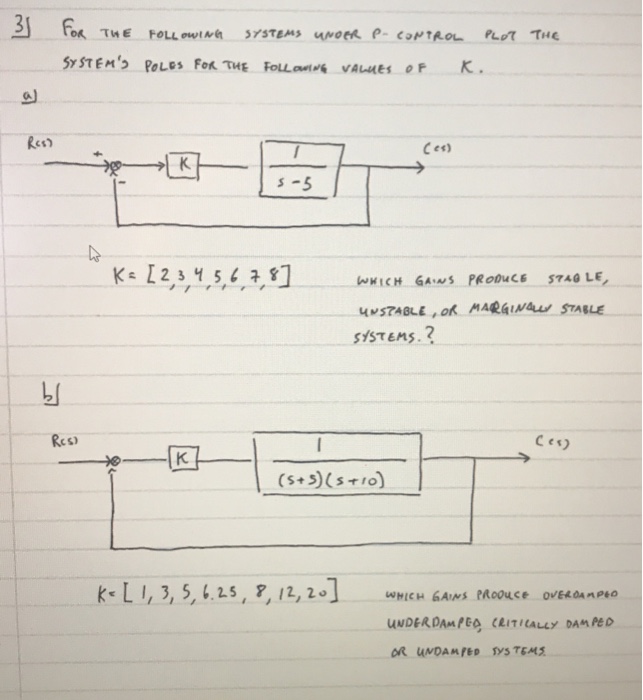 3) FOR THE FOLLOWING SYSTEMS UNDER P-CONTROL PLOT THE
SYSTEM'S POLES FOR THE FOLLOWING VALUES OF K.
a)
R(s) + - K 1 C(s)
s-5
K= [2,3,4,5,6,7,8]
WHICH GAINS PRODUCE STABLE,
UNSTABLE, OR MARGINALLY STABLE
SYSTEMS.?
b)
R(s) K 1 C(s)
(s+5)(s+10)
K= [1,3,5,6.25,8,12,20]
WHICH GAINS PRODUCE OVERDAMPED
UNDERDAMPED, CRITICALLY DAMPED
OR UNDAMPED SYSTEMS